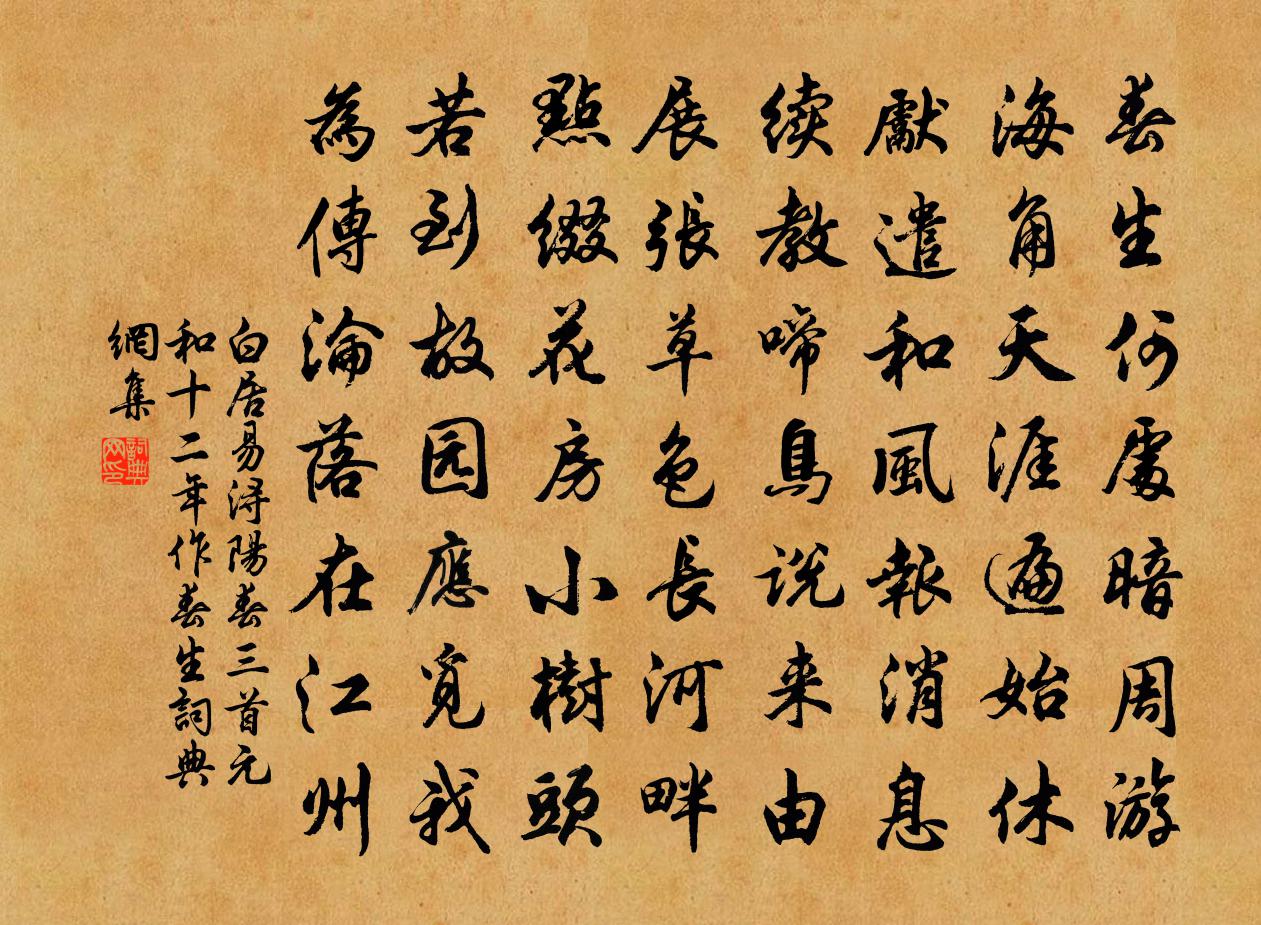 春生何處暗周游
海角天涯遍始休
獻遣和風報消息
续教啼鳥说来由
展張草色長河畔
點綴花房小樹頭
若到故园應覓我
為傳淪落在江州
白居易浔陽春三首元
和十二年作春生詞典
網集
詞典
网印